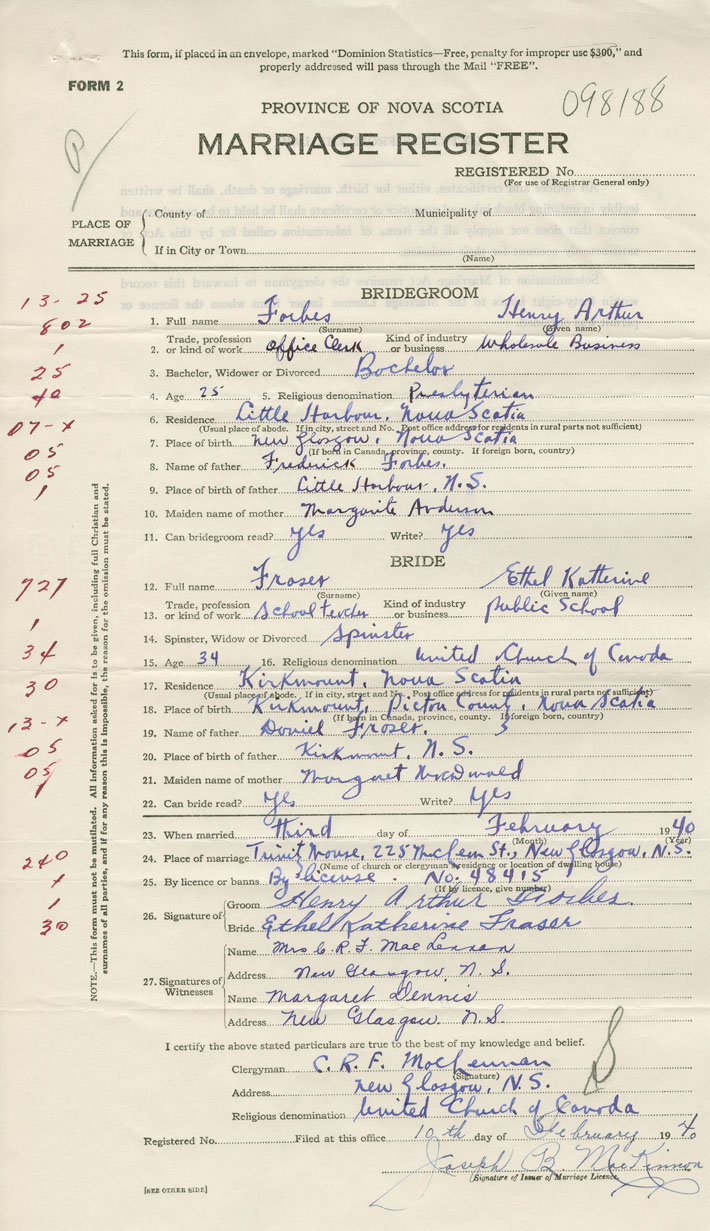 This form, if placed in an envelope, marked "Dominion Statistics—Free, penalty for improper use $300," and
properly addressed will pass through the Mail "FREE".
FORM 2
098188
PROVINCE OF NOVA SCOTIA
MARRIAGE REGISTER
REGISTERED No.
(For use of Registrar General only)
PLACE OF MARRIAGE
County of Municipality of
If in City or Town
(Name)
BRIDEGROOM
13-25
802
1. Full name Forbes Henry Arthur
(Surname) (Given name)
1
2. Trade, profession or kind of work Office Clerk Kind of industry or business Wholesale Business
25
3. Bachelor, Widower or Divorced Bachelor
40
4. Age 25 5. Religious denomination Presbyterian
07-x
6. Residence Little Harbour, Nova Scotia
(Usual place of abode. If in city, street and No. Post office address for residents in rural parts not sufficient)
05
7. Place of birth New Glasgow, Nova Scotia
(If born in Canada, province, county. If foreign born, country)
05
8. Name of father Frederick Forbes.
1
9. Place of birth of father Little Harbour, N.S.
10. Maiden name of mother Margarite Anderson
11. Can bridegroom read? Yes Write? Yes
BRIDE
727
12. Full name Fraser Ethel Katherine
(Surname) (Given name)
1
13. Trade, profession or kind of work School teacher Kind of industry or business Public School
34
14. Spinster, Widow or Divorced Spinster
30
15. Age 34 16. Religious denomination United Church of Canada
17. Residence Kirkmount, Nova Scotia
(Usual place of abode. If in city, street and No. Post office address for residents in rural parts not sufficient)
13-x
18. Place of birth Kirkmount, Pictou County, Nova Scotia
(If born in Canada, province, county. If foreign born, country)
05
19. Name of father Daniel Fraser.
05
20. Place of birth of father Kirkmount, N.S.
1
21. Maiden name of mother Margaret McDonald
22. Can bride read? Yes Write? Yes
23. When married third day of February 1940
(Month) (Year)
240
24. Place of marriage Trinity Mouse, 225 McLean St., New Glasgow, N.S.
(Name of church or clergyman's residence or location of dwelling house)
1
25. By licence or banns By license. No. 48415
(If by licence, give number)
1
30
26. Signature of
Groom Henry Arthur Forbes.
Bride Ethel Katherine Fraser
27. Signatures of Witnesses
Name Mrs C. R. F. MacLennan
Address New Glasgow, N.S.
Name Margaret Dennis
Address New Glasgow, N.S.
I certify the above stated particulars are true to the best of my knowledge and belief.
Clergyman C. R. F. MacLennan
(Signature)
Address New Glasgow, N.S.
Religious denomination United Church of Canada
Registered No. Filed at this office 10th day of February 1940
Joseph B. MacKinnon
(Signature of Issuer of Marriage Licence)
[SEE OTHER SIDE]
NOTE.—This form must not be mutilated. All Information asked for is to be given, including full Christian and
surnames of all parties, and if for any reason this is impossible, the reason for the omission must be stated.